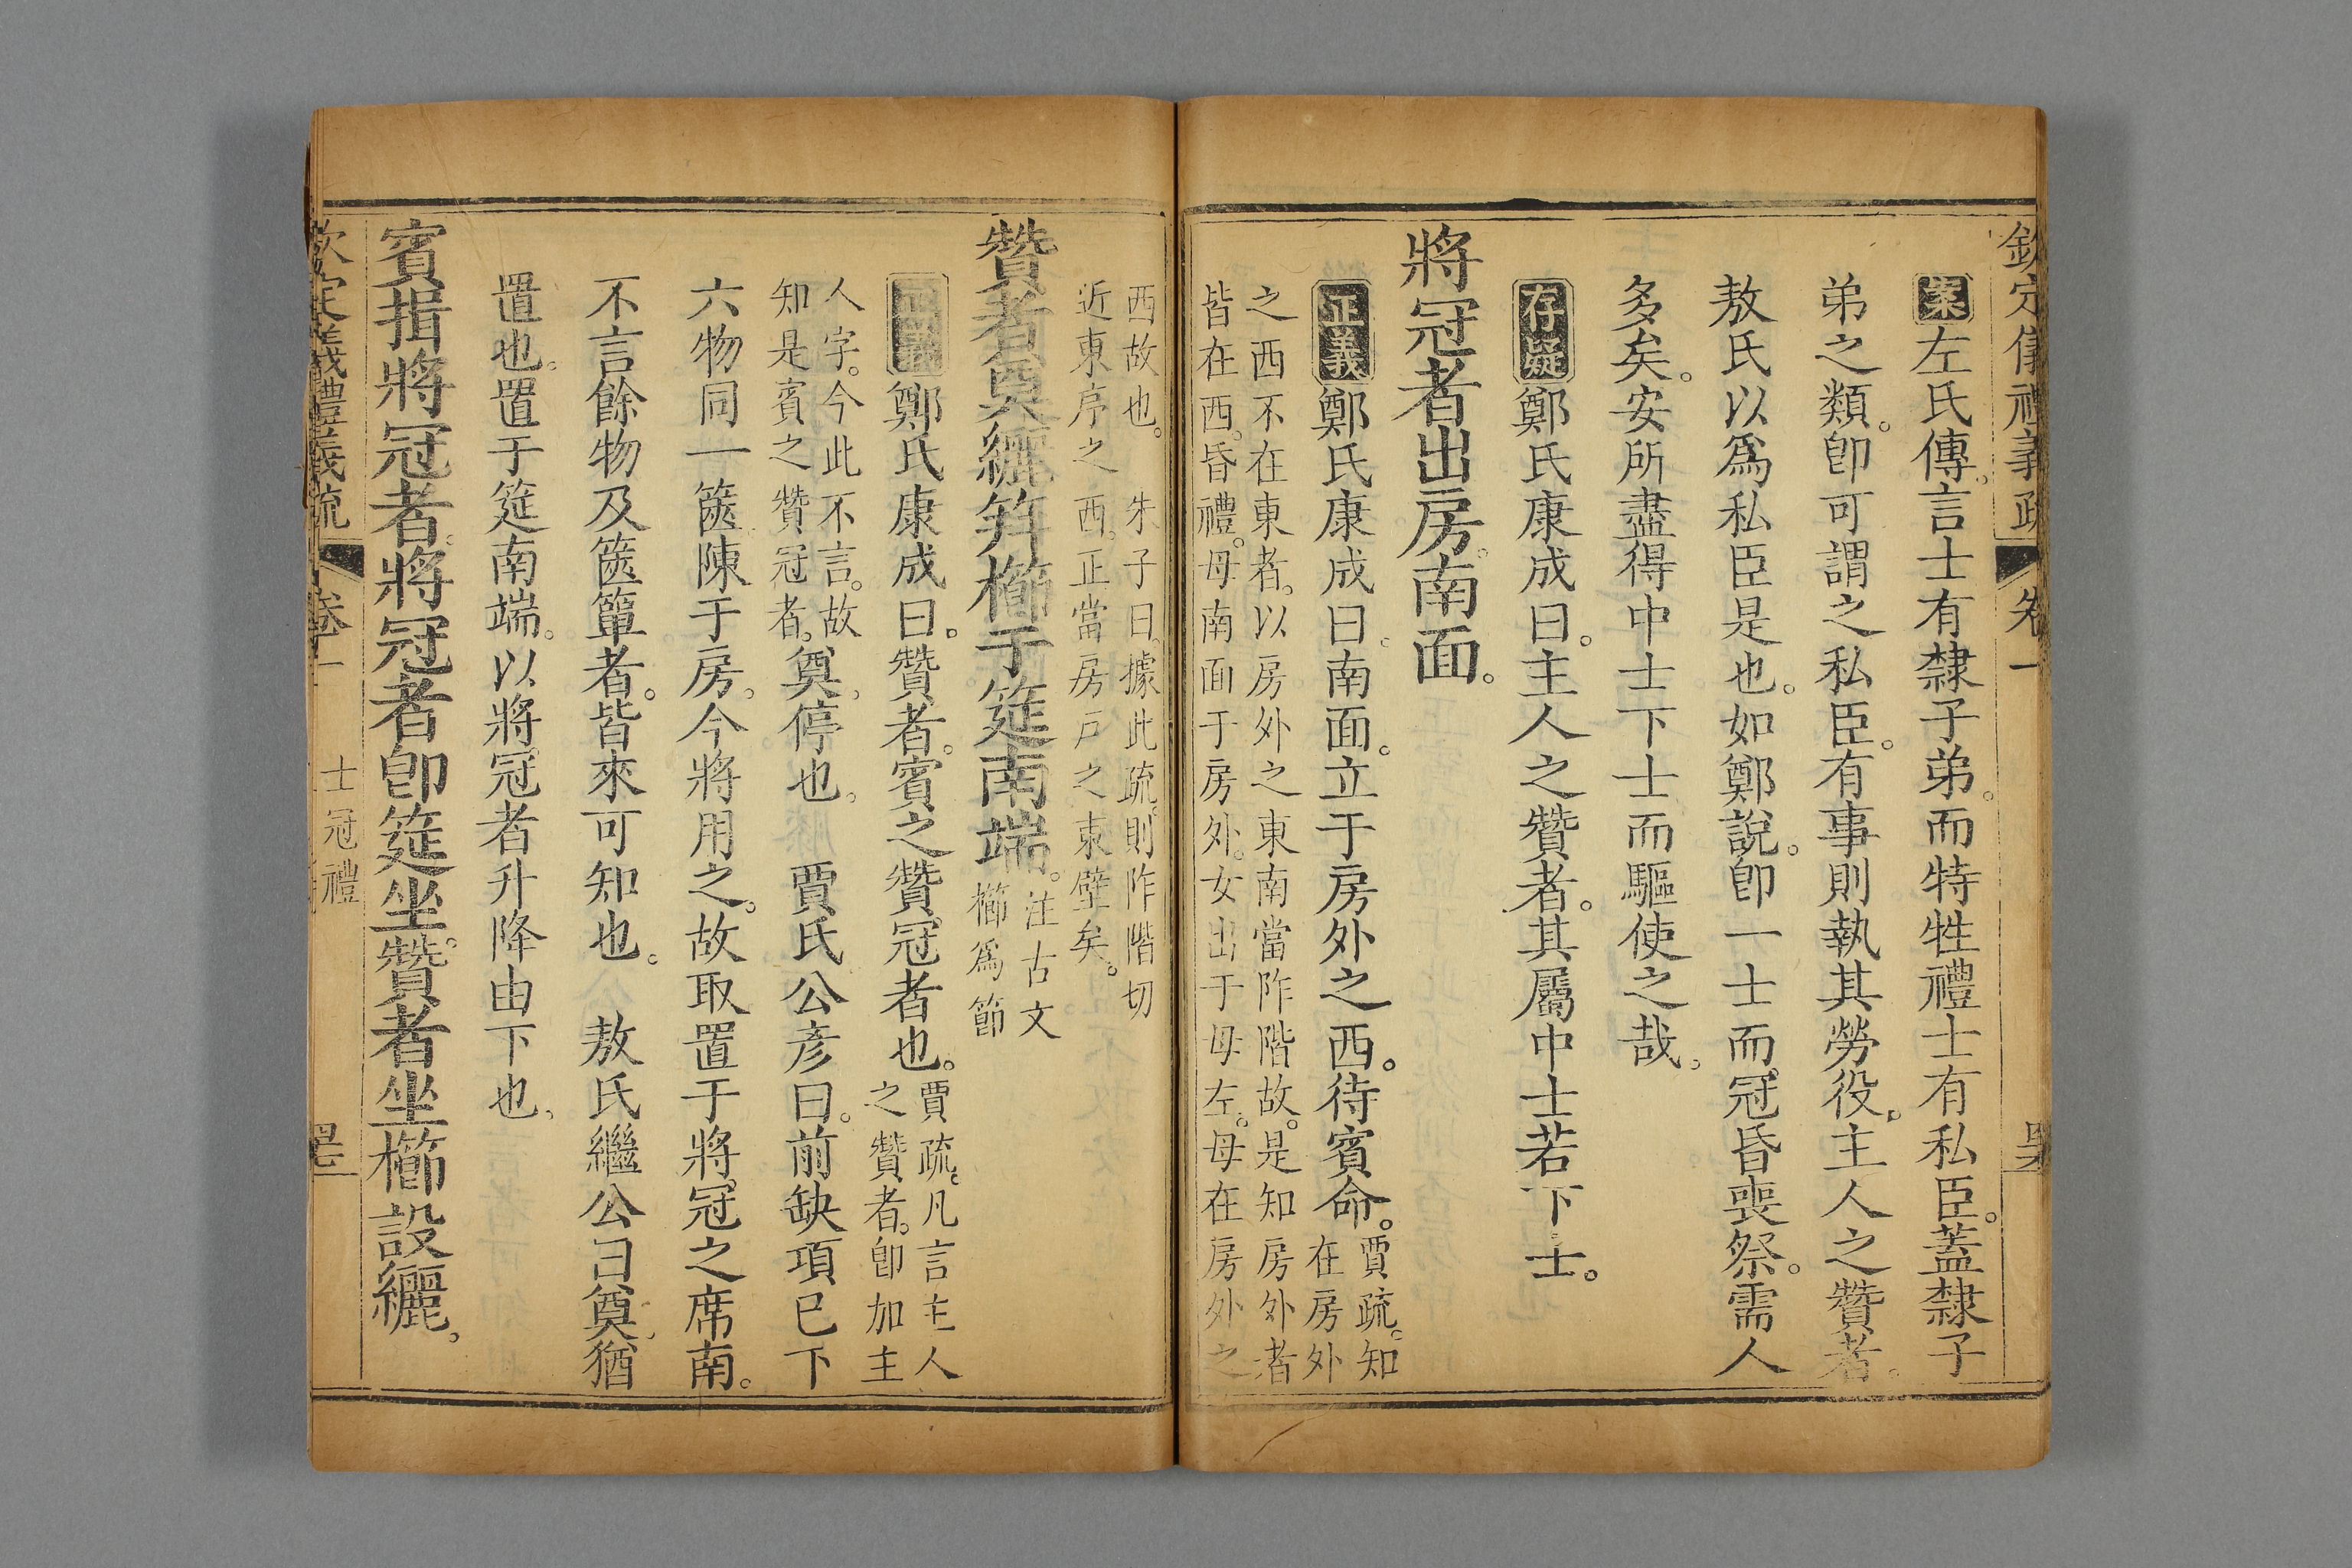 欽定儀禮義疏 卷一
案左氏傳言士有隸子弟。而特牲禮士有私臣。蓋隸子
弟之類。卽可謂之私臣。有事則執其勞役。主人之贊者。
敖氏以爲私臣是也。如鄭說。卽一士而冠昏喪祭。需人
多矣。安所盡得中士下士而驅使之哉。
存疑鄭氏康成曰。主人之贊者。其屬中士若下士。
將冠者出房。南面。
正義鄭氏康成曰。南面。立于房外之西。待賓命。
賈疏。知
在房外
之西不在東者。以房外之東南當阼階故。是知房外者
皆在西。昏禮。母南面于房外。女出于母左。母在房外之
西故也。 朱子曰。據此疏。則阼階切
近東序之西。正當房戶之東壁矣。
贊者奠纚笄櫛于筵南端。
注古文
櫛爲節
正義鄭氏康成曰。贊者。賓之贊冠者也。
賈疏。凡言主人
之贊者。卽加主
人字。今此不言。故
知是賓之贊冠者。
奠。停也。 賈氏公彥曰。前缺項已下
六物同一篋陳于房。今將用之。故取置于將冠之席南。
不言餘物及篋簞者。皆來可知也。 敖氏繼公曰。奠。猶
置也。置于筵南端。以將冠者升降由下也。
賓揖將冠者。將冠者卽筵坐。贊者坐櫛設纚。
欽定儀禮義疏 卷一 士冠禮